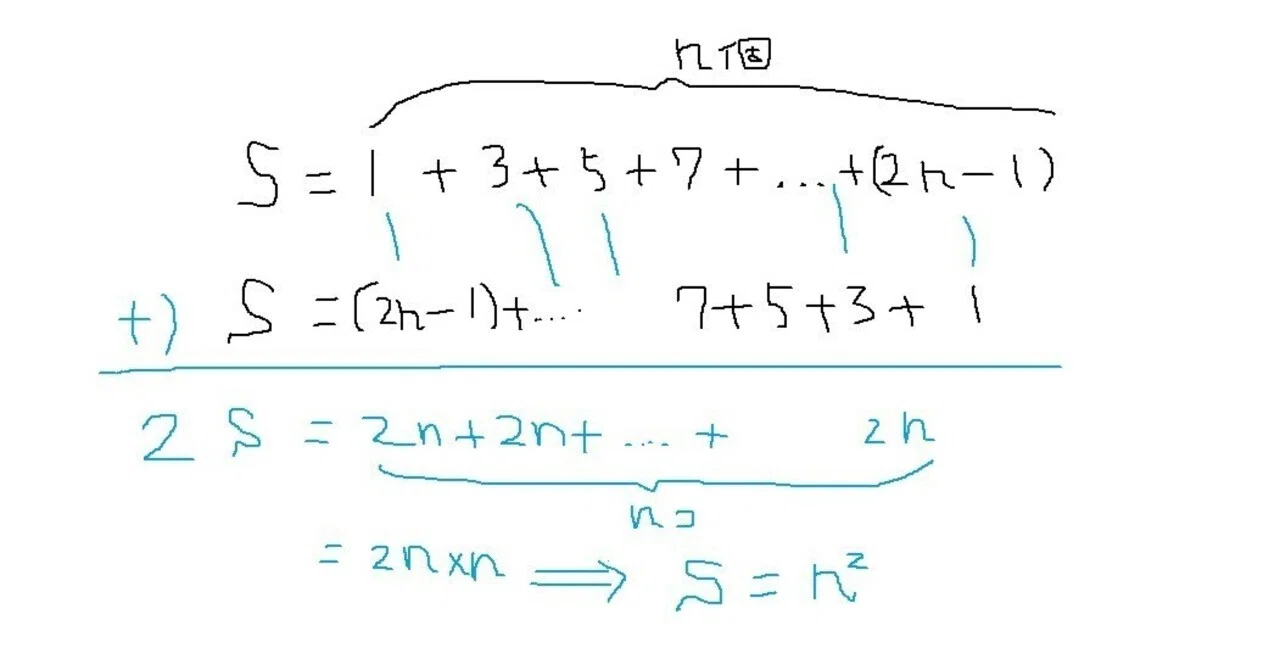 n個
S = 1 + 3 + 5 + 7 + ... + (2n-1)
+) S = (2n-1) + .... 7 + 5 + 3 + 1
2S = 2n + 2n + .... + 2n
nコ
= 2n×n ⟹ S = n²